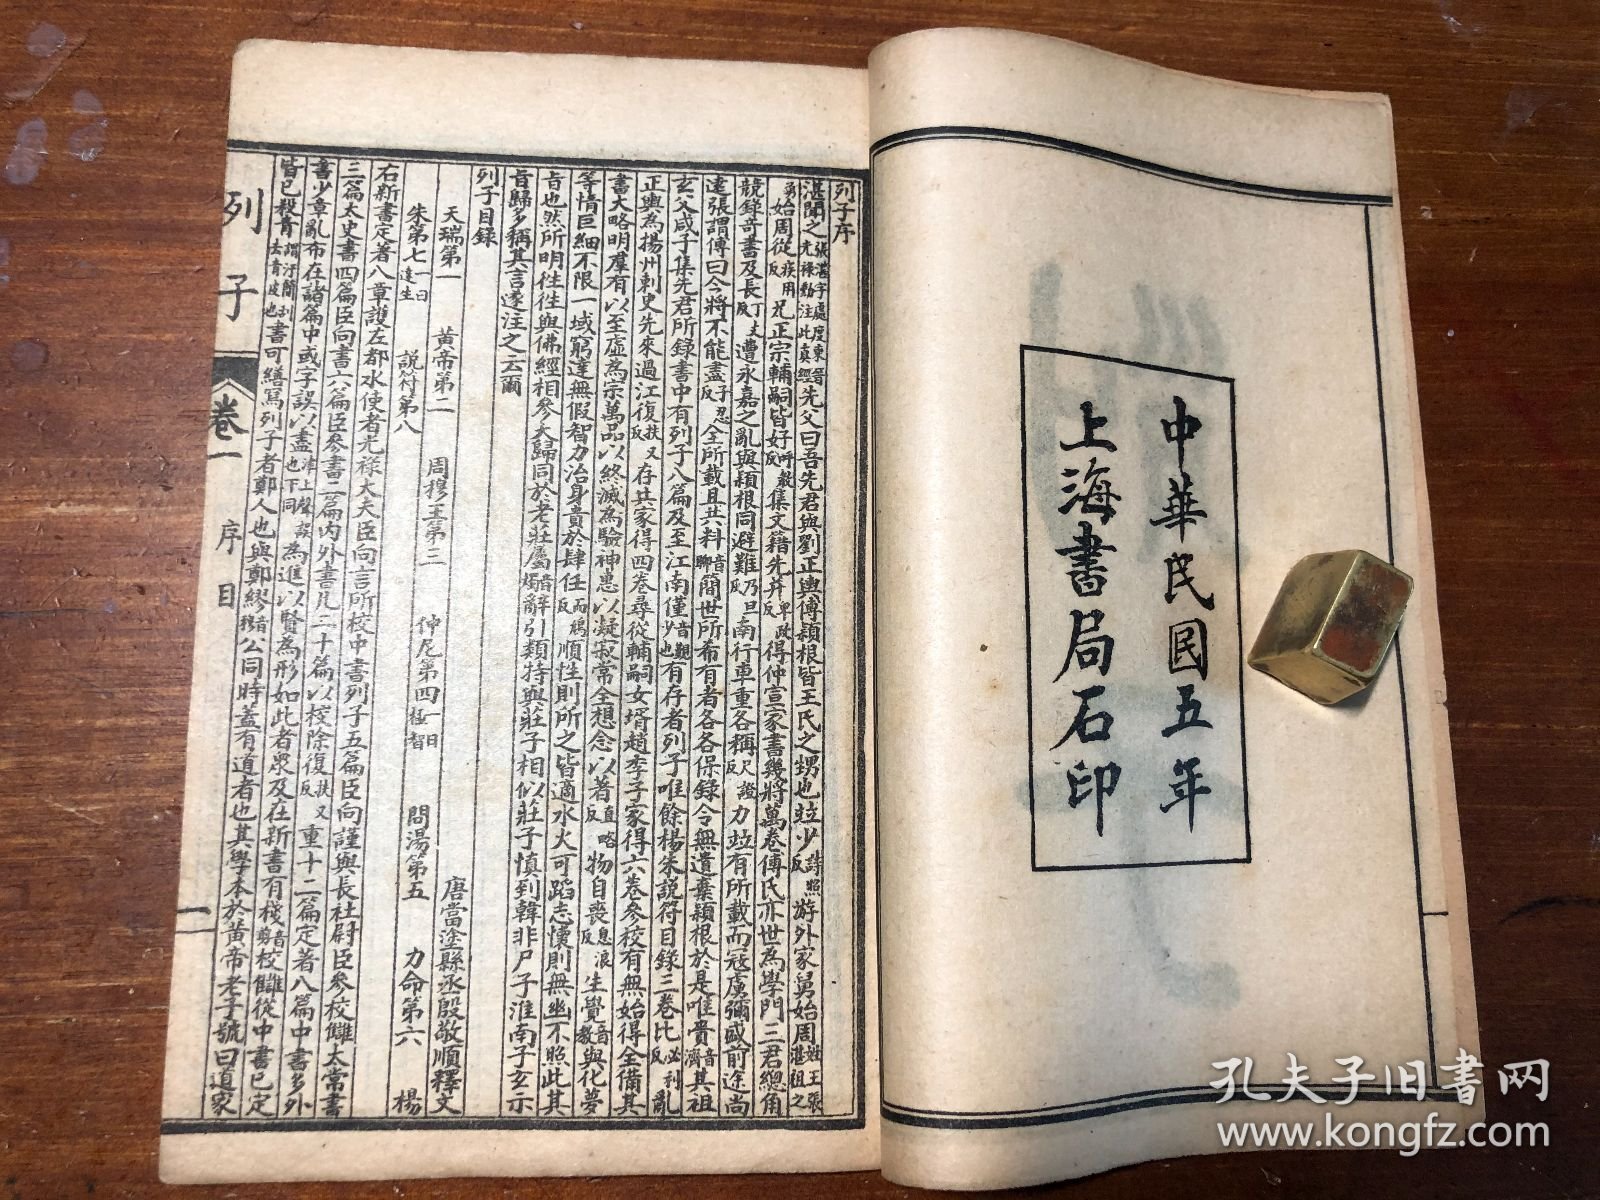 中華民囻五年
上海書局石印
列子序
湛聞之張湛字處度東晉光祿勳注此真經先父曰吾先君與劉正輿傅穎根皆王氏之甥也竝少詩照反游外家舅始周姓王張湛祖之
舅始周從疾用反兄正宗輔嗣皆好呼報反集文籍先幷卑政反得仲宣家書幾將萬卷傅氏亦世為學門三君總角
競錄奇書及長丁丈反遭永嘉之亂與穎根同避難乃旦反南行車重各稱尺證反力竝有所載而寇虜彌盛前途尚
遠張謂傅曰今將不能盡子忍反全所載且共料音聊簡世所希有者各各保錄令無遺棄穎根於是唯賫音濟其祖
玄父咸子集先君所錄書中有列子八篇及至江南僅音覲少也有存者列子唯餘楊朱說符目錄三卷比必利反亂
正輿為揚州刺史先來過江復扶又反存其家得四卷尋從輔嗣女壻趙季子家得六卷參校有無始得全備其
書大略明羣有以至虛為宗萬品以終滅為驗神惠以凝寂常全想念以著直略反物自喪息浪反生覺音教與化夢
等情巨細不限一域窮達無假智力治身貴於肆任而鴆反順性則所之皆適水火可蹈忘懷則無幽不照此其
旨也然所明往往與佛經相參大歸同於老莊屬音燭辭引類特與莊子相似莊子慎到韓非尸子淮南子玄示
旨歸多稱其言遂注之云爾
列子目錄
唐當塗縣丞殷敬順釋文
天瑞第一 黃帝第二 周穆王第三 仲尼第四一曰極智 問湯第五 力命第六 楊
朱第七一曰達生 說符第八
右新書定著八章護左都水使者光祿大夫臣向言所校中書列子五篇臣向謹與長社尉臣參校讎太常書
三篇太史書四篇臣向書六篇臣參書二篇內外書凡二十篇以校除復扶又反重十二篇定著八篇中書多外
書少章亂布在諸篇中或字誤以盡津上聲下同也誤為進以賢為形如此者衆及在新書有棧音剪校讎從中書已定
皆已殺青謂汗簡刮去青皮也書可繕寫列子者鄭人也與鄭繆音穆公同時蓋有道者也其學本於黃帝老子號曰道家
列子
卷一
序目
一
孔夫子旧书网
www.kongfz.com